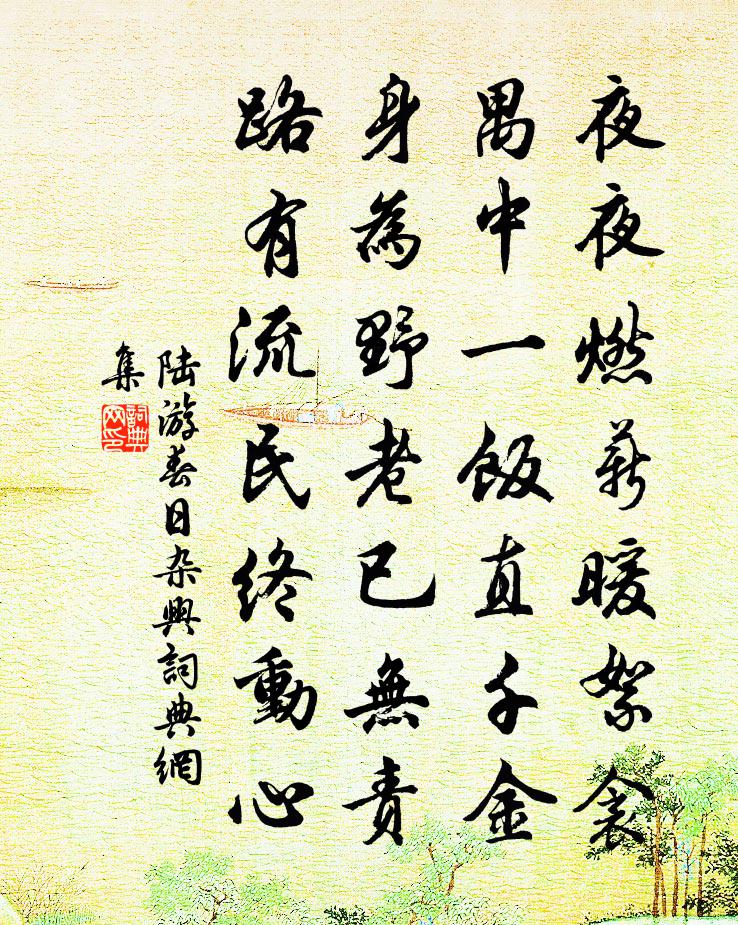 夜夜燃薪暖絮衾
禺中一飯直千金
身為野老已無責
路有流民終動心
陸游春日杂興詞典網
集
詞典
网印